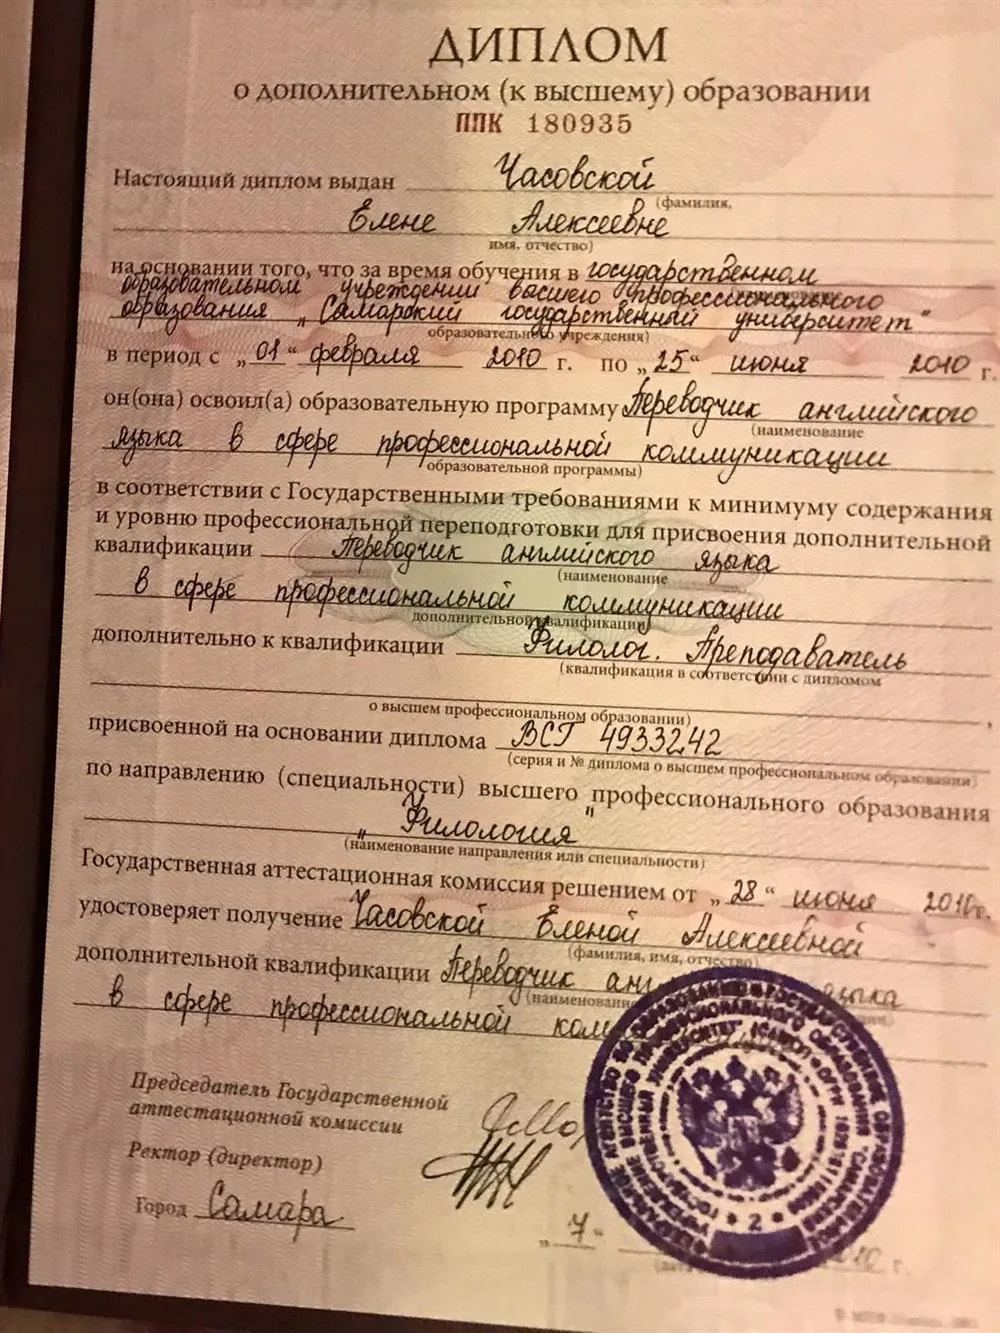 ДИПЛОМ
о дополнительном (к высшему) образовании
ППК 180935
Настоящий диплом выдан Часовской
(фамилия,
Елене Алексеевне
имя, отчество)
на основании того, что за время обучения в государственном
образовательном учреждении высшего профессионального
образования „Самарский государственный университет"
образовательного учреждения)
в период с „01" февраля 2010 г. по „25" июня 2010 г.
он(она) освоил(а) образовательную программу Переводчик английского
(наименование
языка в сфере профессиональной коммуникации
образовательной программы)
в соответствии с Государственными требованиями к минимуму содержания
и уровню профессиональной переподготовки для присвоения дополнительной
квалификации Переводчик английского языка
(наименование
в сфере профессиональной коммуникации
дополнительной квалификации)
дополнительно к квалификации Филолог. Преподаватель
(квалификация в соответствии с дипломом
о высшем профессиональном образовании)
присвоенной на основании диплома ВСГ 4933242
(серия и № диплома о высшем профессиональном образовании)
по направлению (специальности) высшего профессионального образования
„Филология"
(наименование направления или специальности)
Государственная аттестационная комиссия решением от „28" июня 2010г.
удостоверяет получение Часовской Еленой Алексеевной
(фамилия, имя, отчество)
дополнительной квалификации Переводчик языка
(наименование
в сфере профессиональной
Председатель Государственной
аттестационной комиссии
Ректор (директор)
Город Самара
„7"